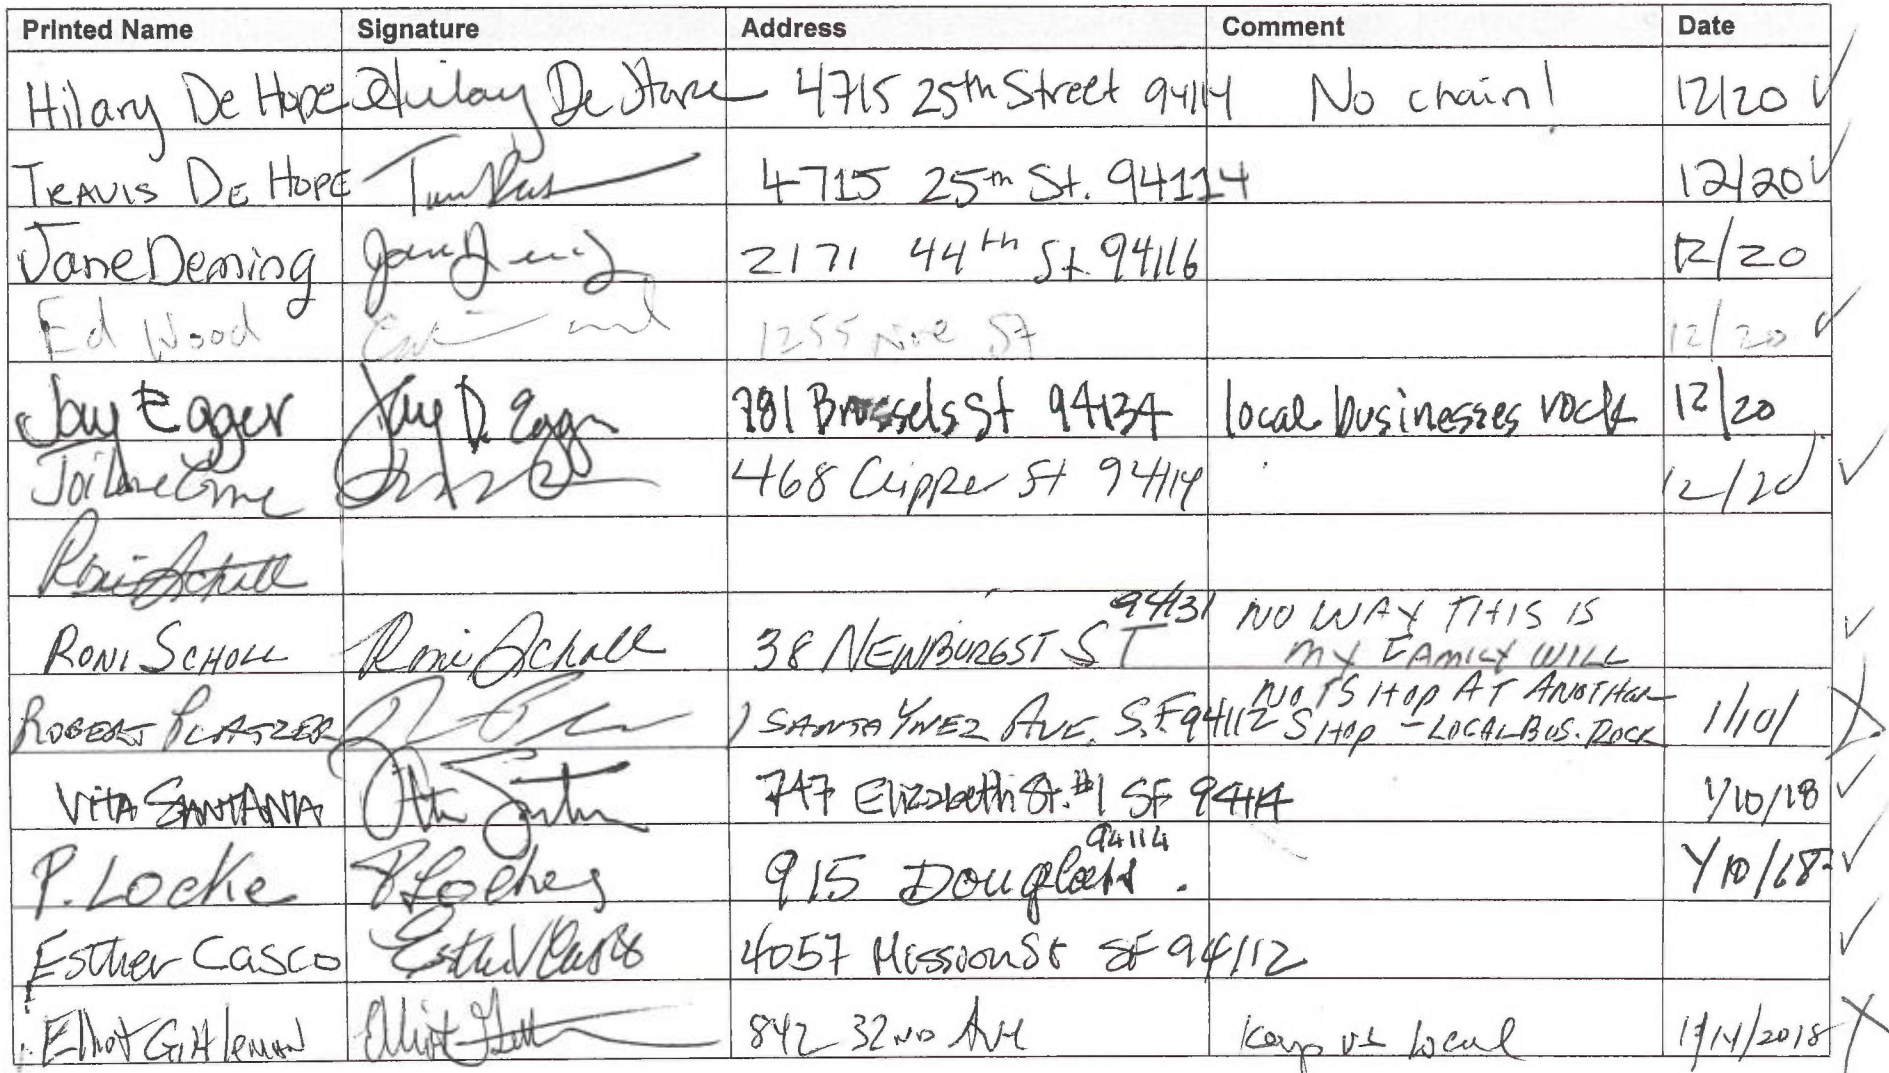 Printed Name Signature Address Comment Date
Hilary De Hope Hilary De Hope 4715 25th Street 94114 No chain! 12/20 ✓
TRAVIS DE HOPE 4715 25th St. 94114 12/20 ✓
Jane Deming Jane Deming 2171 44th St. 94116 12/20
Ed Wood 1255 Noe St 12/20 ✓
Jay Egger Jay D. Egger 781 Brussels St 94134 local businesses rock 12/20
468 Clipper St 94114 12/20 ✓
Roni Scholl
94131 NO WAY THIS IS
RONI SCHOLL Roni Scholl 38 NEWBURGST ST MY FAMILY WILL ✓
NOT SHOP AT ANOTHER
ROBERT PLATZER 1 SANTA YNEZ AVE. S.F. 94112 SHOP - LOCAL BUS. ROCK 1/10/
VITA SANTANA 747 Elizabeth St. #1 SF 94114 1/10/18 ✓
94114
P. Locke P Locke 915 Douglass . 1/10/18 ✓
Esther Casco Esther Casco 4057 Mission St SF 94112 ✓
Elliot Gittleman Elliot 842 32ND Ave Keep us local 1/14/2018 X